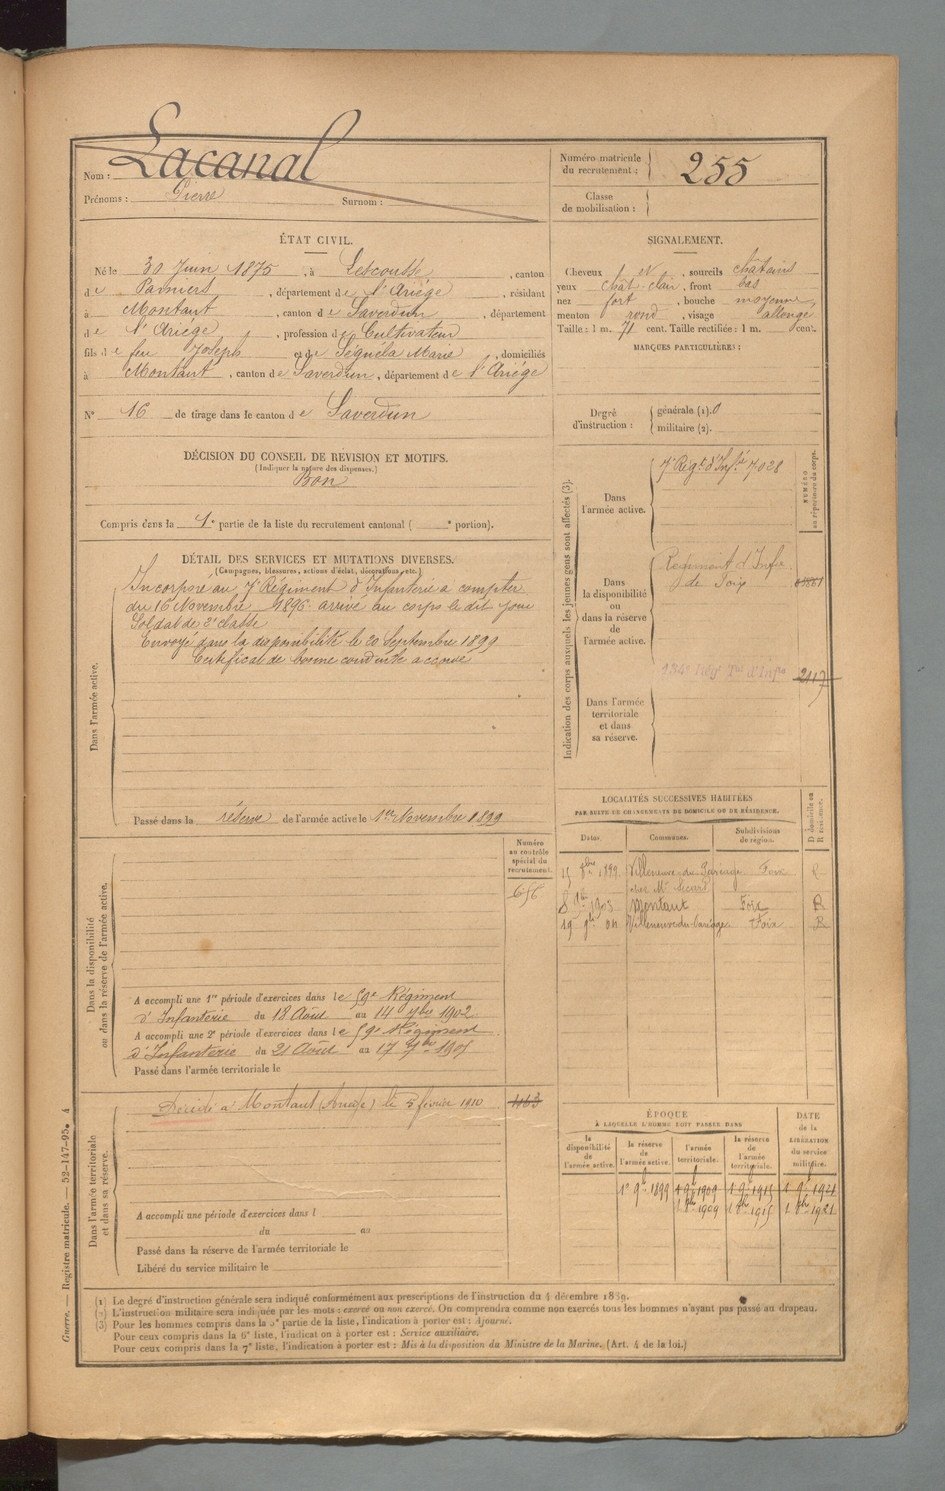 Nom : Lacanal
Prénoms : Pierre Surnom :
Numéro matricule du recrutement : 255
Classe de mobilisation :
ÉTAT CIVIL.
Né le 30 Juin 1875, à Lescousse, canton
de Pamiers, département de l'Ariége, résidant
à Montaut, canton de Saverdun, département
de l'Ariége, profession de Cultivateur
fils de feu Joseph et de Séguéla Marie, domiciliés
à Montaut, canton de Saverdun, département de l'Ariége
N° 16 de tirage dans le canton de Saverdun
SIGNALEMENT.
Cheveux et, sourcils châtains
yeux chât. clair, front bas
nez fort, bouche moyenne,
menton rond, visage allongé
Taille : 1 m. 71 cent. Taille rectifiée : 1 m. cent.
MARQUES PARTICULIÈRES :
Degré d'instruction : générale (1). 0
militaire (2).
DÉCISION DU CONSEIL DE REVISION ET MOTIFS.
(Indiquer la nature des dispenses.)
Bon
Compris dans la 1e partie de la liste du recrutement cantonal ( e portion).
DÉTAIL DES SERVICES ET MUTATIONS DIVERSES.
(Campagnes, blessures, actions d'éclat, décorations, etc.)
Dans l'armée active.
Incorporé au 7e Régiment d'Infanterie à compter
du 16 Novembre 1896. arrivé au corps le dit jour
Soldat de 2e classe
Envoyé dans la disponibilité le 20 Septembre 1899
Certificat de bonne conduite accordé
Passé dans la réserve de l'armée active le 1er Novembre 1899
Indication des corps auxquels les jeunes gens sont affectés (3).
NUMÉRO au répertoire du corps.
Dans l'armée active.
7e Régt d'Infie 7028
Dans la disponibilité ou dans la réserve de l'armée active.
Régiment d'Infie
de Foix
Dans l'armée territoriale et dans sa réserve.
134e Régt Tal d'Infie 2117
LOCALITÉS SUCCESSIVES HABITÉES
PAR SUITE DE CHANGEMENTS DE DOMICILE OU DE RÉSIDENCE.
D domicile ou R résidence.
Dates. Communes. Subdivisions de région.
15 8bre 1899 Villeneuve-du-Paréage Foix R
8 9bre 1903 Montaut Foix R
19 9bre 04 Villeneuve-du-Paréage Foix R
Dans la disponibilité ou dans la réserve de l'armée active.
Numéro au contrôle spécial du recrutement.
A accompli une 1re période d'exercices dans le 59e Régiment
d'Infanterie du 18 Août au 14 7bre 1902
A accompli une 2e période d'exercices dans le 59e Régiment
d'Infanterie du 21 Août au 17 7bre 1905
Passé dans l'armée territoriale le
Dans l'armée territoriale et dans sa réserve.
Décédé à Montaut (Ariège) le 5 février 1910 1163
A accompli une période d'exercices dans l
du au
Passé dans la réserve de l'armée territoriale le
Libéré du service militaire le
ÉPOQUE
À LAQUELLE L'HOMME DOIT PASSER DANS
DATE de la LIBÉRATION du service militaire.
la disponibilité de l'armée active. la réserve de l'armée active. l'armée territoriale. la réserve de l'armée territoriale.
1er 9bre 1899 1 9bre 1909 1 9bre 1915 1 9bre 1921
1 8bre 1909 1 8bre 1915 1 8bre 1921
(1) Le degré d'instruction générale sera indiqué conformément aux prescriptions de l'instruction du 4 décembre 1889.
(2) L'instruction militaire sera indiquée par les mots : exercé ou non exercé. On comprendra comme non exercés tous les hommes n'ayant pas passé au drapeau.
(3) Pour les hommes compris dans la 5e partie de la liste, l'indication à porter est : Ajourné.
Pour ceux compris dans la 6e liste, l'indication à porter est : Service auxiliaire.
Pour ceux compris dans la 7e liste, l'indication à porter est : Mis à la disposition du Ministre de la Marine. (Art. 4 de la loi.)
Guerre. — Registre matricule. — 52-147-95. 4